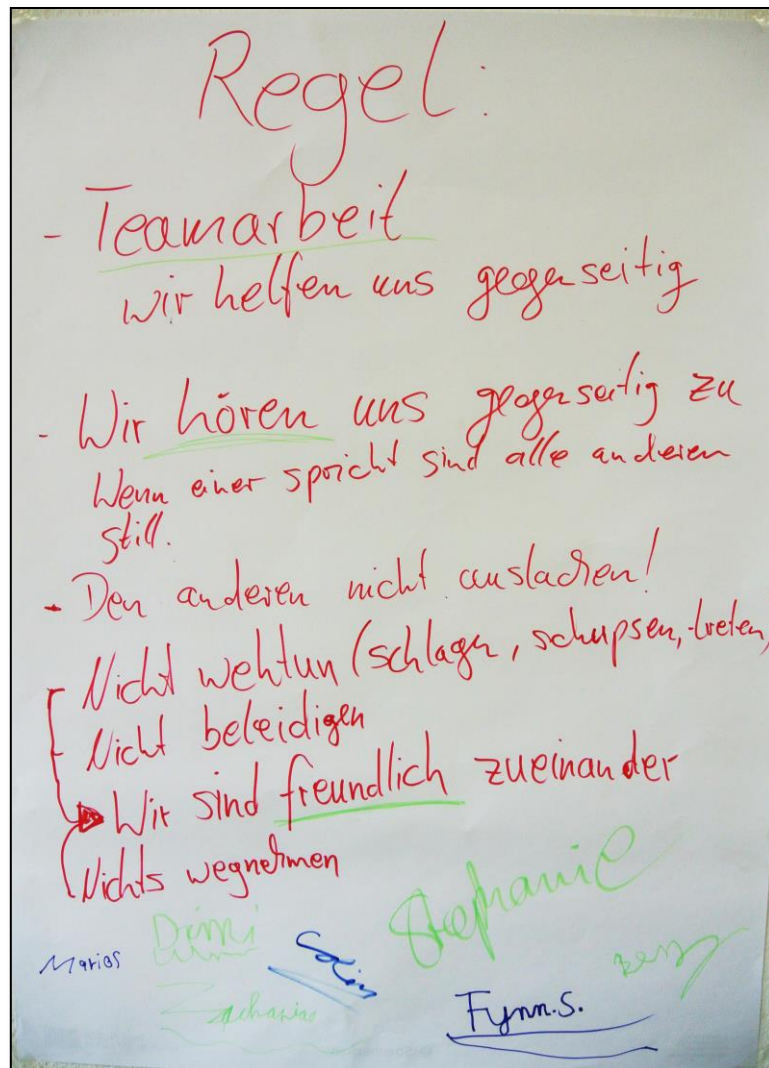 Regel:
- Teamarbeit
wir helfen uns gegenseitig
- Wir hören uns gegenseitig zu
Wenn einer spricht sind alle anderen
still.
- Den anderen nicht auslachen!
- Nicht wehtun (schlagen, schupsen, treten,
- Nicht beleidigen
Wir sind freundlich zueinander
Nichts wegnehmen
Stephanie
Marios Dimi
Zacharias Fynn.S.